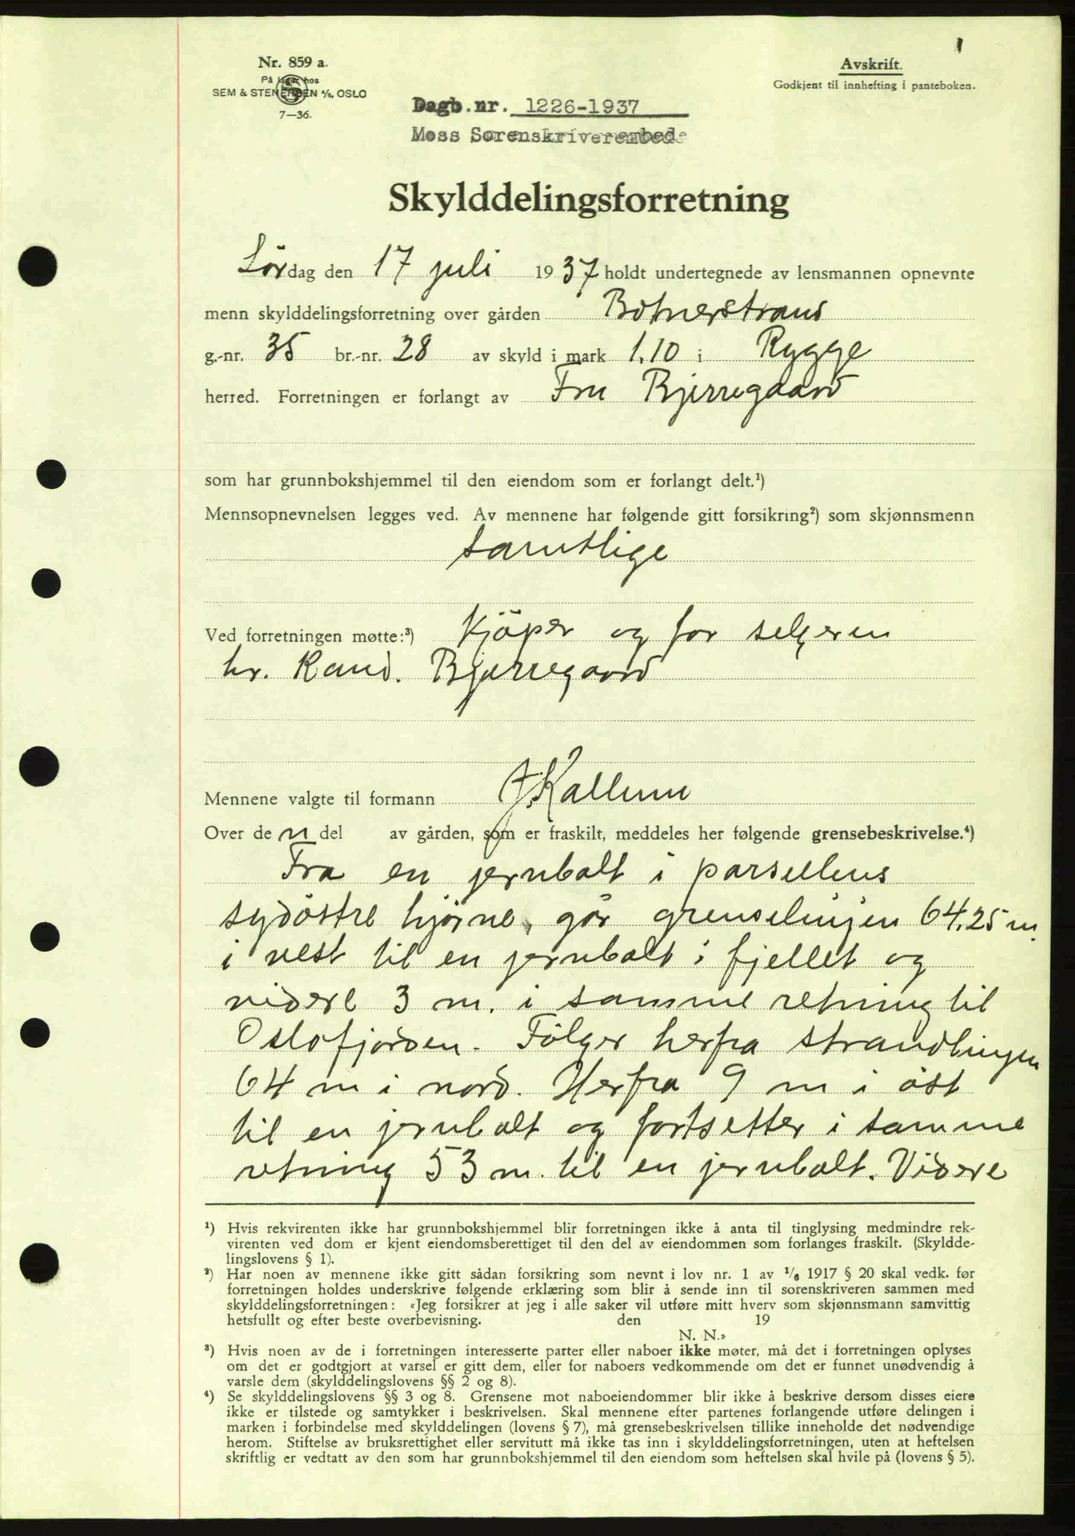 1
Nr. 859 a.
På lager hos
SEM & STENERSEN A/S, OSLO
7—36.
Avskrift.
Godkjent til innhefting i panteboken.
Dagb.nr. 1226-1937
Moss Sorenskriverembede
Skylddelingsforretning
Lördag den 17 juli 1937 holdt undertegnede av lensmannen opnevnte
menn skylddelingsforretning over gården Botnerstrand
g.-nr. 35 br.-nr. 28 av skyld i mark 1,10 i Rygge
herred. Forretningen er forlangt av Fru Bjerregaard
som har grunnbokshjemmel til den eiendom som er forlangt delt.¹)
Mennsopnevnelsen legges ved. Av mennene har følgende gitt forsikring²) som skjønnsmenn
samtlige
Ved forretningen møtte:³) Kjöper og for selgeren
hr. Kand. Bjerregaard
Mennene valgte til formann J. Kallum
Over den del av gården, som er fraskilt, meddeles her følgende grensebeskrivelse.⁴)
Fra en jernbolt i parsellens
sydöstre hjørne, går grenselinjen 64,25 m.
i vest til en jernbolt i fjellet og
videre 3 m. i samme retning til
Oslofjorden. Fölger herfra strandlinjen
64 m i nord. Herfra 9 m i öst
til en jernbolt og fortsetter i samme
retning 53 m. til en jernbolt. Videre
¹) Hvis rekvirenten ikke har grunnbokshjemmel blir forretningen ikke å anta til tinglysing medmindre rek-
virenten ved dom er kjent eiendomsberettiget til den del av eiendommen som forlanges fraskilt. (Skyldde-
lingslovens § 1).
²) Har noen av mennene ikke gitt sådan forsikring som nevnt i lov nr. 1 av 1/6 1917 § 20 skal vedk. før
forretningen holdes underskrive følgende erklæring som blir å sende inn til sorenskriveren sammen med
skylddelingsforretningen: «Jeg forsikrer at jeg i alle saker vil utføre mitt hverv som skjønnsmann samvittig
hetsfullt og efter beste overbevisning. den 19
N. N.»
³) Hvis noen av de i forretningen interesserte parter eller naboer ikke møter, må det i forretningen oplyses
om det er godtgjort at varsel er gitt dem, eller for naboers vedkommende om det er funnet unødvendig å
varsle dem (skylddelingslovens §§ 2 og 8).
⁴) Se skylddelingslovens §§ 3 og 8. Grensene mot naboeiendommer blir ikke å beskrive dersom disses eiere
ikke er tilstede og samtykker i beskrivelsen. Skal mennene efter partenes forlangende utføre delingen i
marken i forbindelse med skylddelingen (lovens § 7), må grensebeskrivelsen tillike inneholde det nødvendige
herom. Stiftelse av bruksrettighet eller servitutt må ikke tas inn i skylddelingsforretningen, uten at heftelsen
skriftlig er vedtatt av den som har grunnbokshjemmel til den eiendom som heftelsen skal hvile på (lovens § 5).